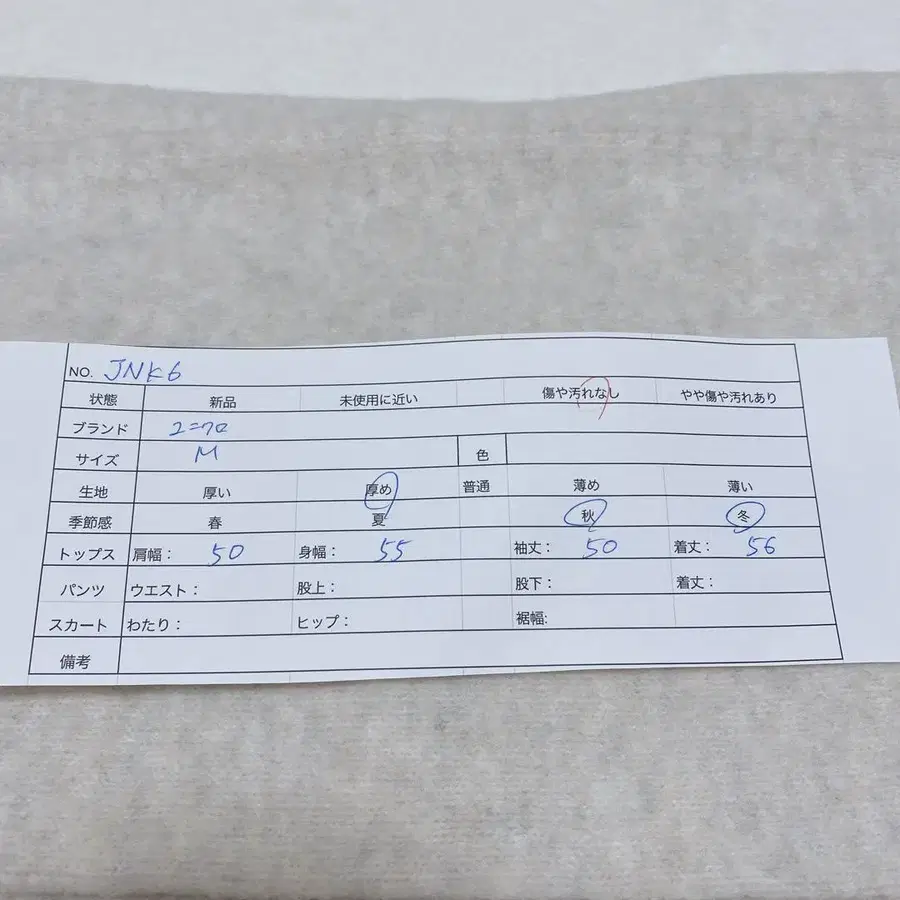 NO. JNK6
状態 新品 未使用に近い 傷や汚れなし やや傷や汚れあり
ブランド ユニクロ
サイズ M 色
生地 厚い 厚め 普通 薄め 薄い
季節感 春 夏 秋 冬
トップス 肩幅: 50 身幅: 55 袖丈: 50 着丈: 56
パンツ ウエスト: 股上: 股下: 着丈:
スカート わたり: ヒップ: 裾幅:
備考